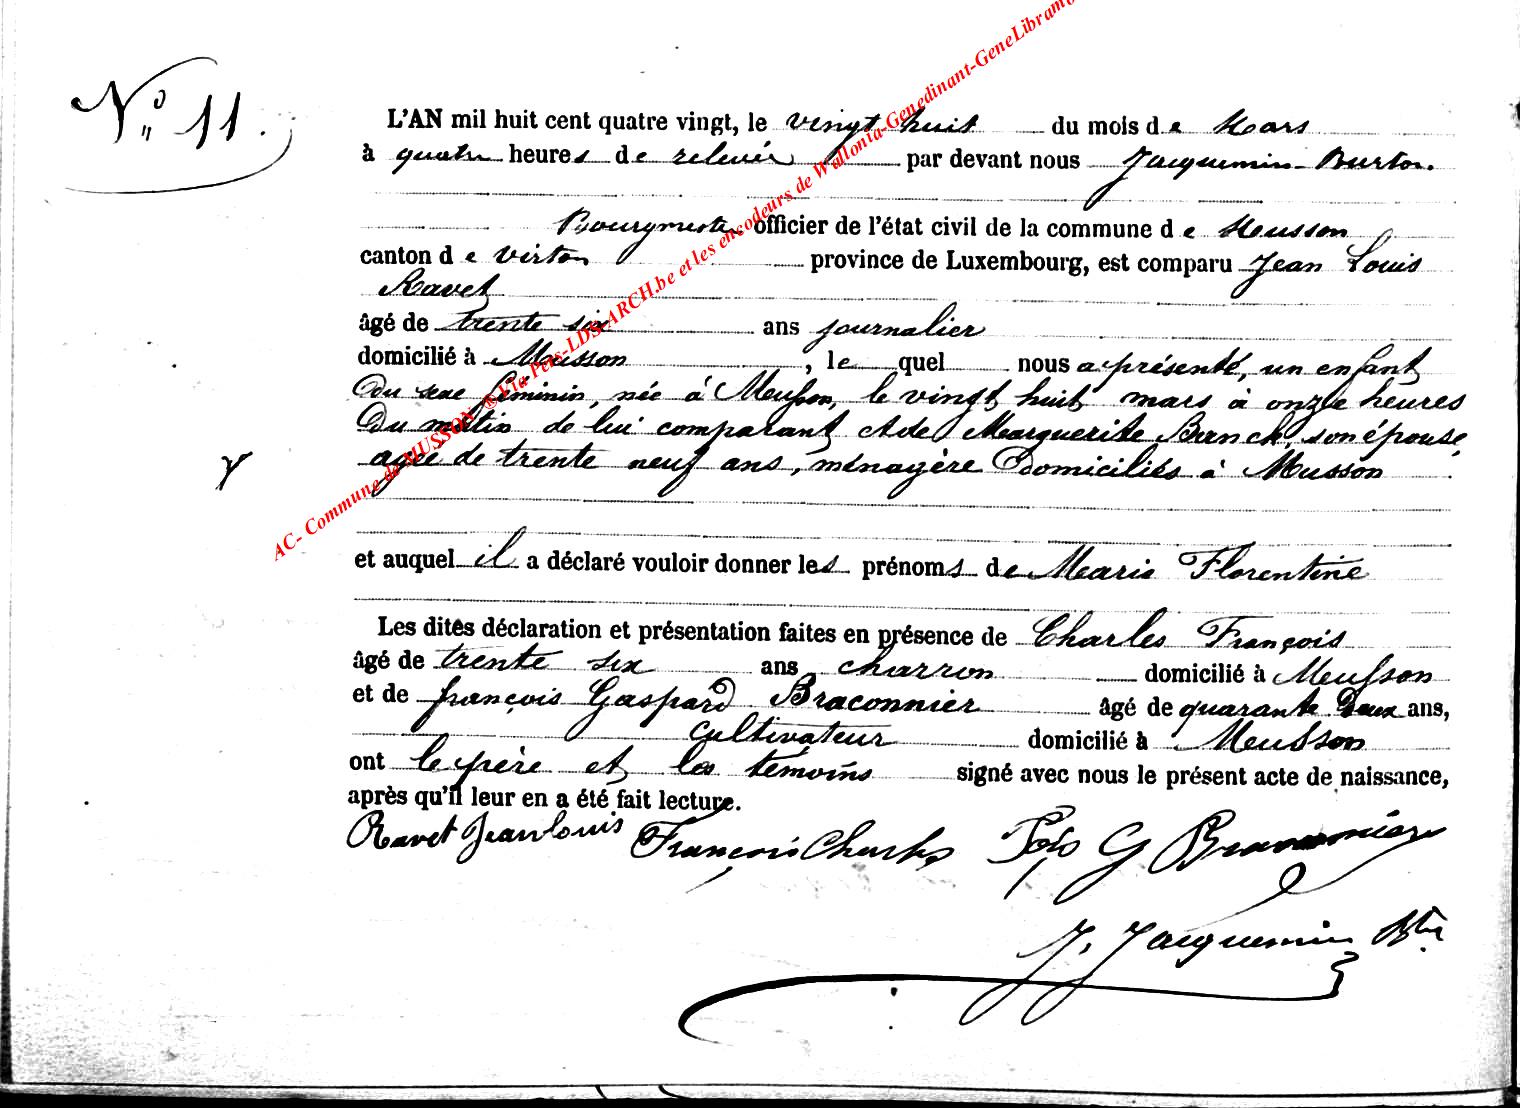 N° 11.
L'AN mil huit cent quatre vingt, le vingt huit du mois de Mars
à quatre heures de relevée par devant nous Jacquemin-Burton.
Bourgmestre officier de l'état civil de la commune de Musson
canton de Virton province de Luxembourg, est comparu Jean Louis
Ravet
âgé de trente six ans journalier
domicilié à Musson, le quel nous a présenté, un enfant
du sexe féminin, née à Musson, le vingt huit mars à onze heures
du matin de lui comparant et de Marguerite son épouse,
agée de trente neuf ans, ménagère domiciliés à Musson
et auquel il a déclaré vouloir donner les prénoms de Marie Florentine
Les dites déclaration et présentation faites en présence de Charles François
âgé de trente six ans charron domicilié à Musson
et de françois Gaspard Braconnier âgé de quarante deux ans,
cultivateur domicilié à Musson
ont le père et les témoins signé avec nous le présent acte de naissance,
après qu'il leur en a été fait lecture.
Ravet Jean louis François Charles G Braconnier
J. Jacquemin
AC- Commune de MUSSON ® Via Pers-LDS-ARCH.be et les encodeurs de Wallonia-Genedinant-GeneLibramo